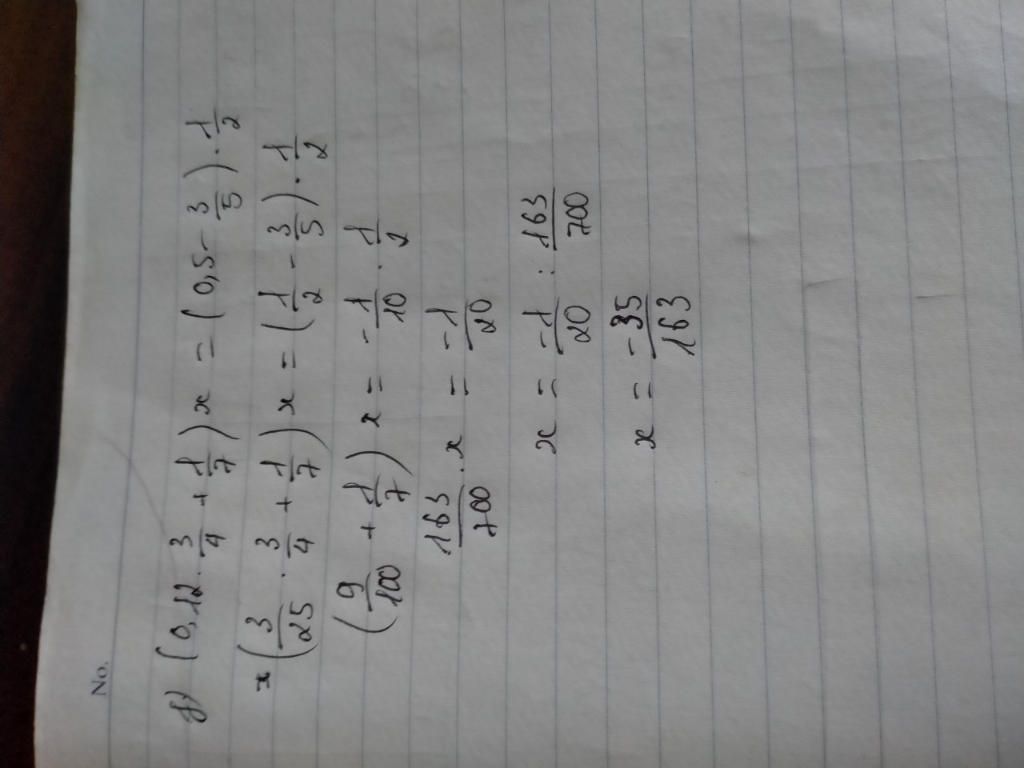 No.
8) (0,12 · 3/4 + 1/7) x = (0,5 - 3/5) · 1/2
x (3/25 · 3/4 + 1/7) x = (1/2 - 3/5) · 1/2
(9/100 + 1/7) x = -1/10 · 1/2
163/700 · x = -1/20
x = -1/20 : 163/700
x = -35/163